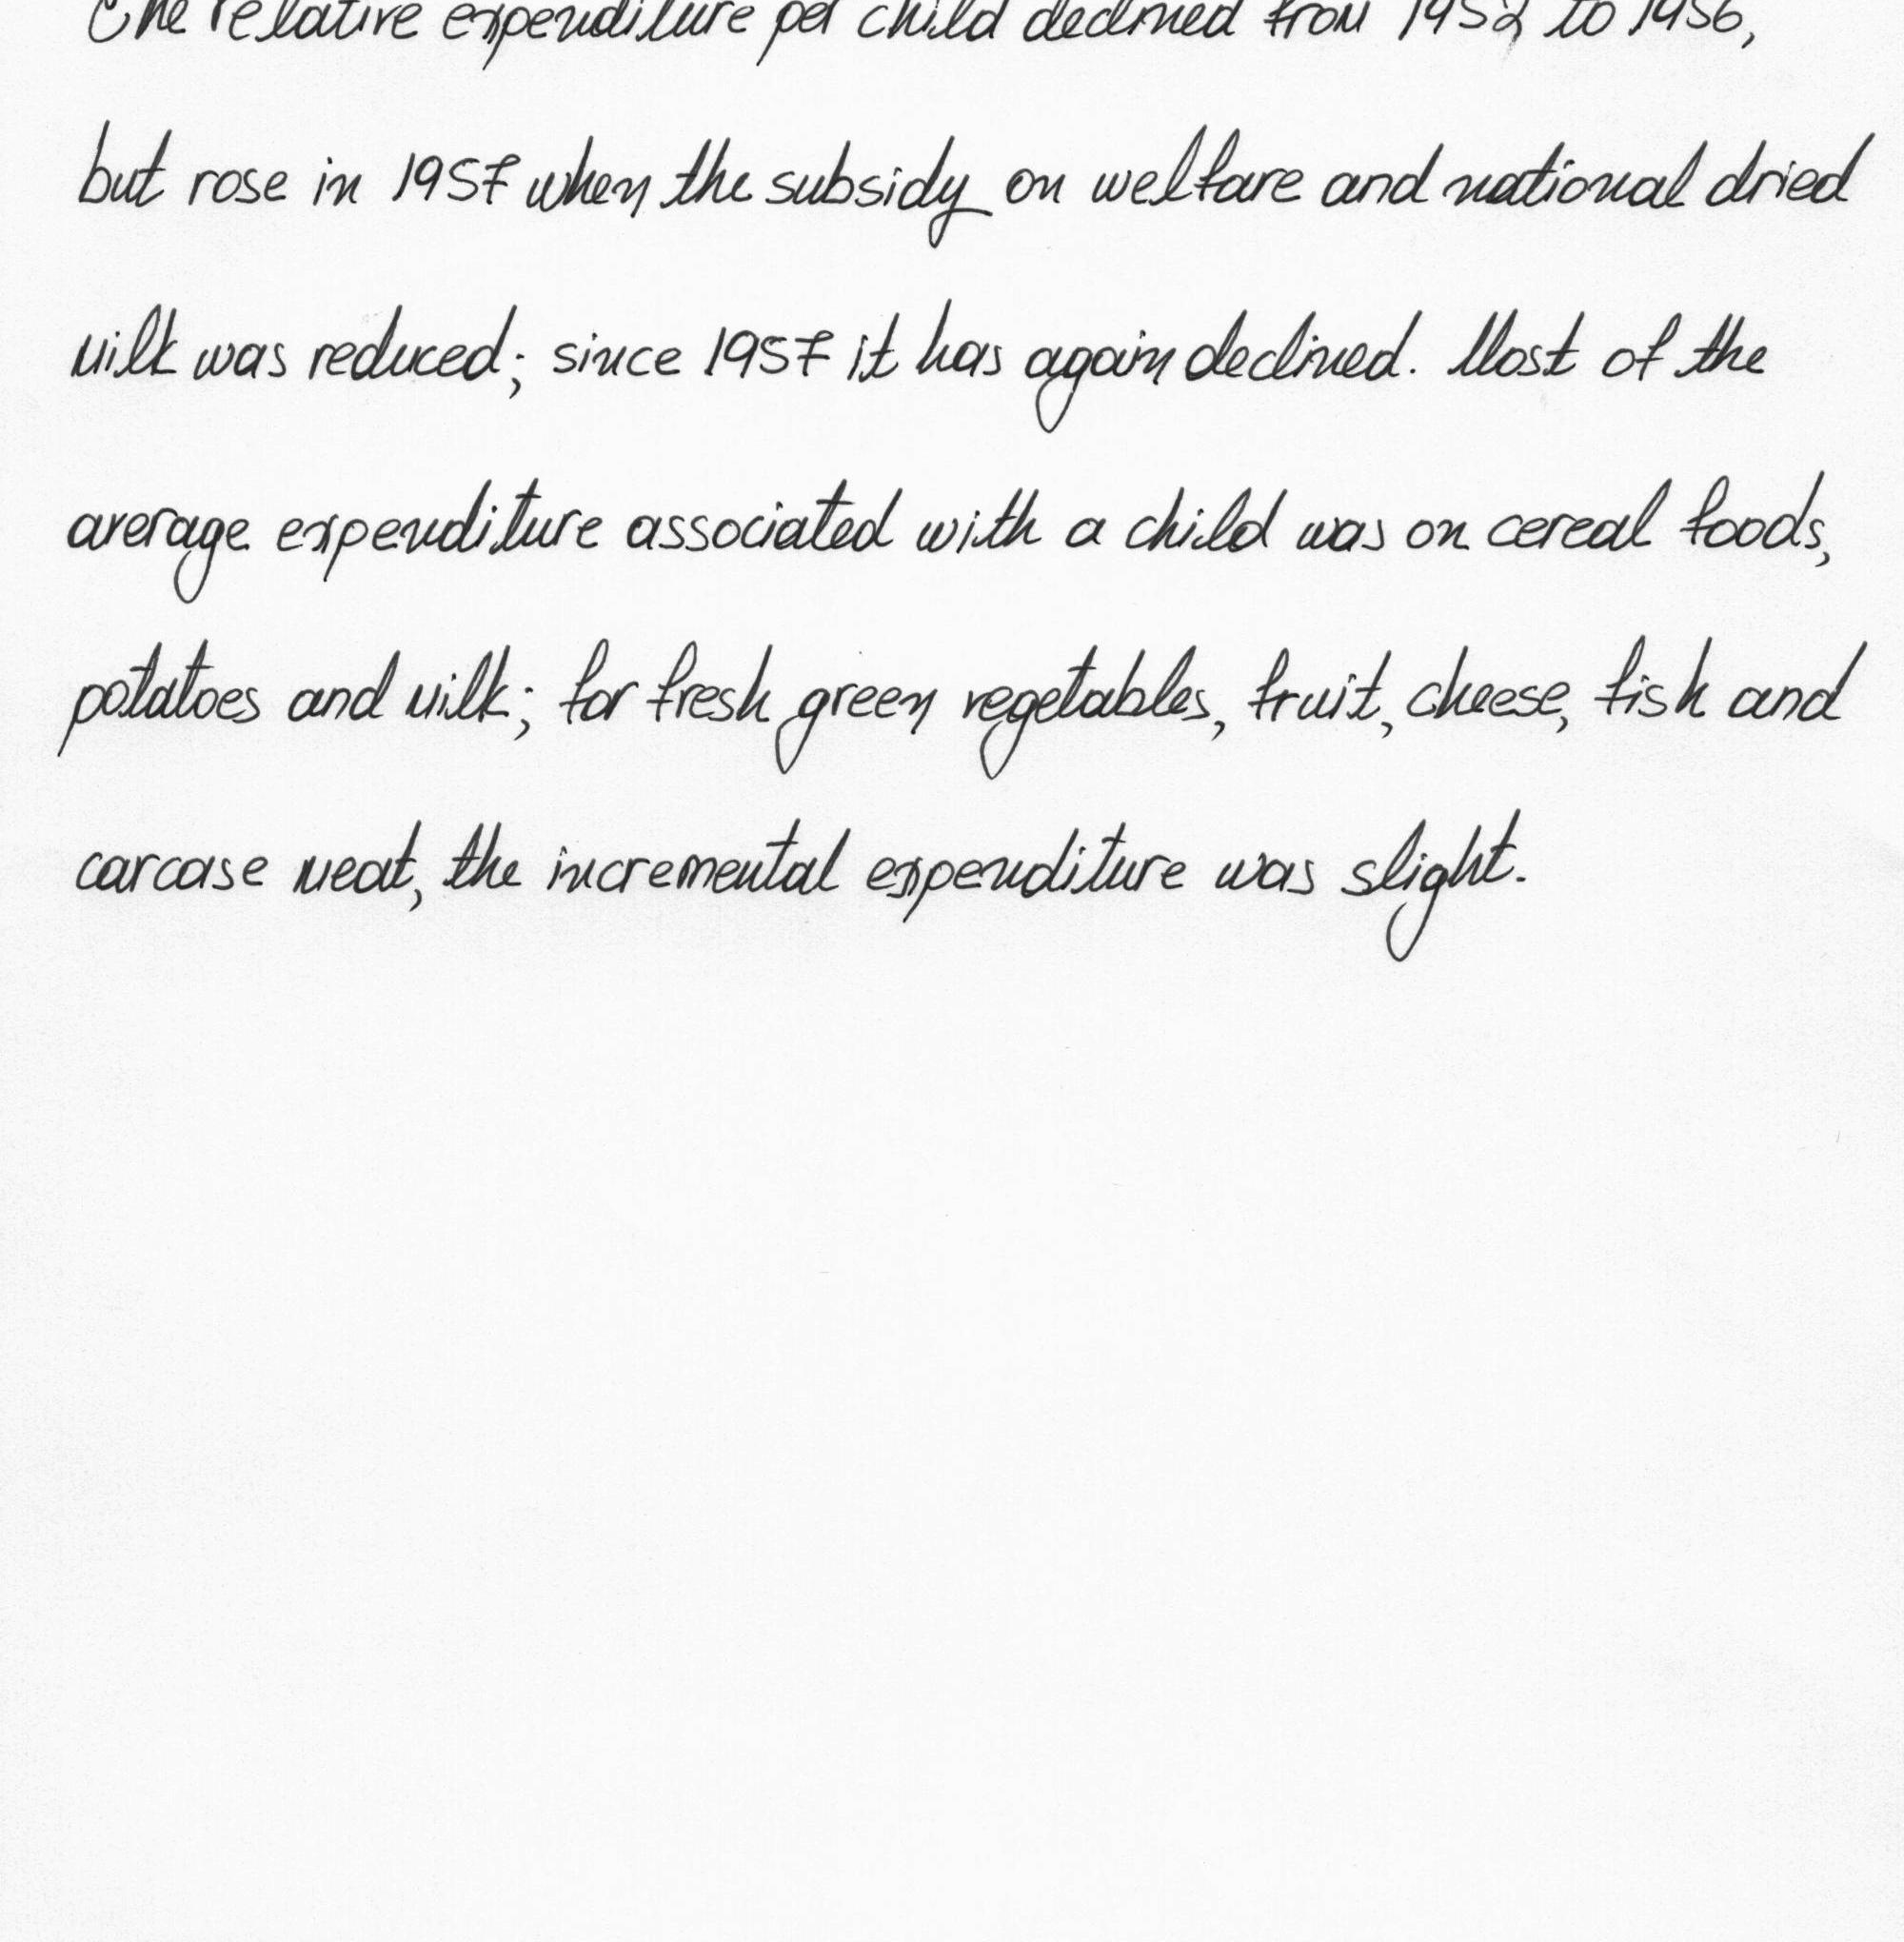 The relative expenditure per child declined from 1952 to 1956,
but rose in 1957 when the subsidy on welfare and national dried
milk was reduced; since 1957 it has again declined. Most of the
average expenditure associated with a child was on cereal foods,
potatoes and milk; for fresh green vegetables, fruit, cheese, fish and
carcase meat, the incremental expenditure was slight.